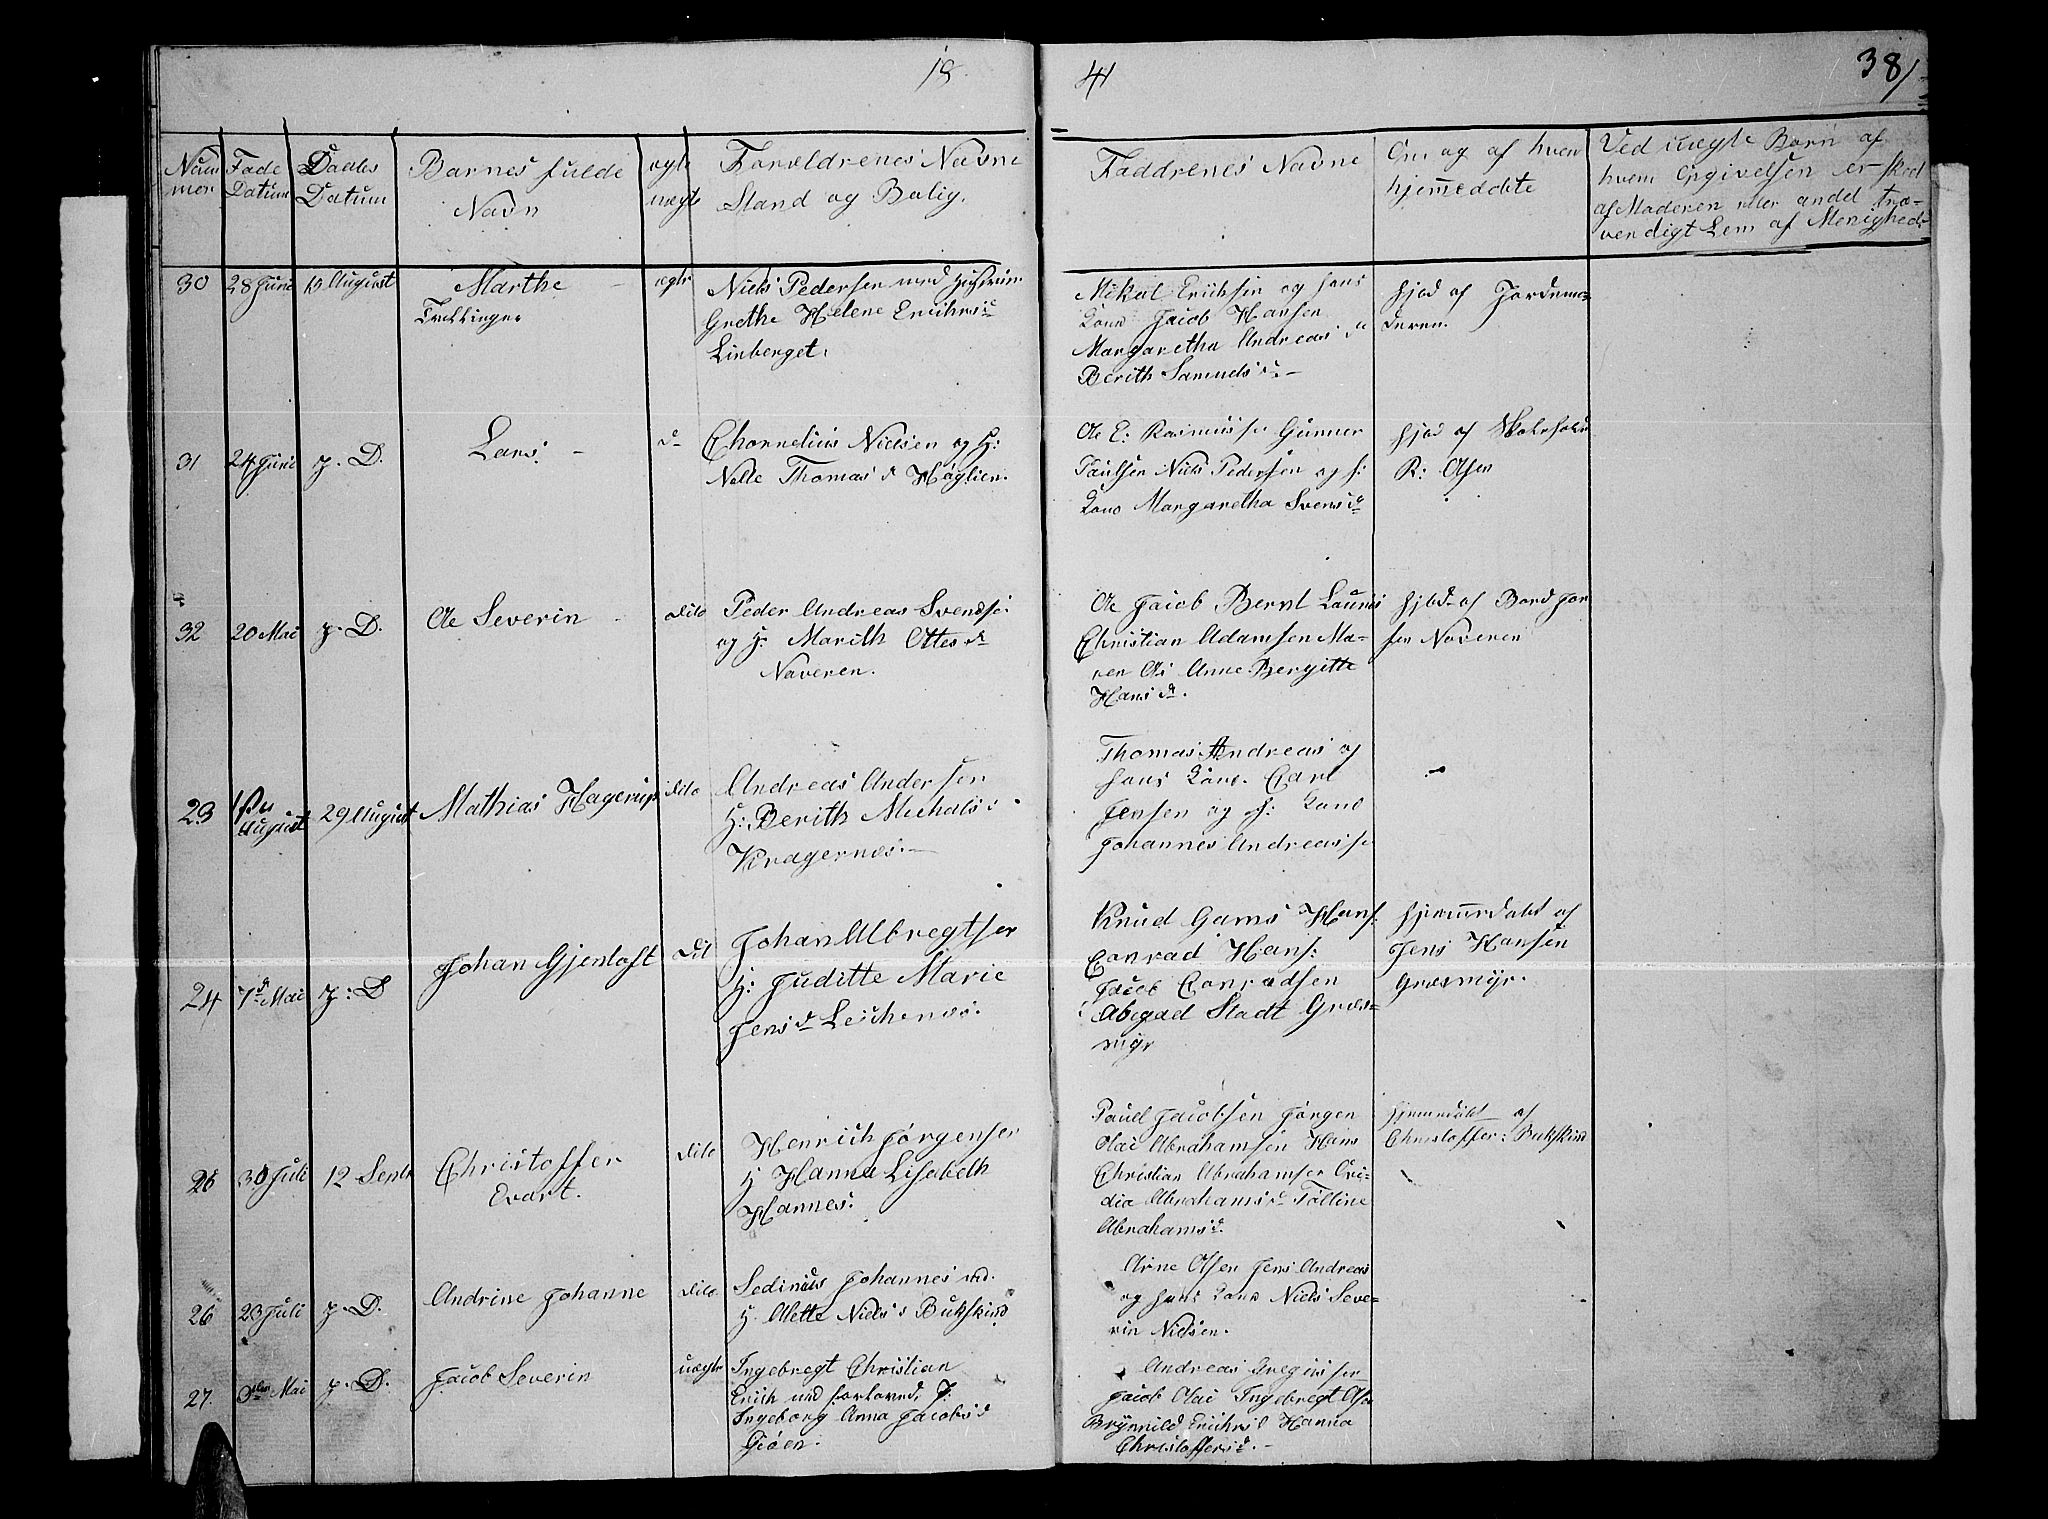 18
41
38/
Num
mer
Føde
Datum
Daabs
Datum
Barnes fulde
Navn
ægte
uægte
Forældrenes Navne
Stand og Bolig.
Faddrenes Navne
Om og af hvem
hjemmedøbte
Ved uægte Børn af
hvem Angivelsen er skeed
af Moderen eller andet tro-
verdigt Lem af Menighed
30 28 Juni August Marthe ægte
Tvillinger
Niels Pedersen med
Grethe Helene Erichsd
Linberget.
Mikal Erichsen og hans
Kone Jacob Hansen
Margaretha Andreasd
Berith Samuelsd. -
hjed af Jordemo-
deren.
31 24 Juni p. D. Lars. - d-
Chornelius Nielsen og H:
Nelle Thomasd Høglien.
Ole E: Rasmuss Gunner
Paulsen Niels Pedersen og h:
Kone Margaretha Svensd
hjed af Skoleholder
R: Olsen
32 20 Mai p. D. Ole Severin - dito
Peder Andreas Svendse:
og H: Marith Ottesd
Naveren.
Ole Jacob Bernt Lauris
Christian Adamsen Ma-
ren Ols Anne Bergitte
Hansd.
hjed af Bord
sen Naveren
23 August 29 August Mathias Hagerup dito
Andreas Andersen
H: Berith Michalsd
Kragernæs. -
Thomas Andreas og
hans Kone. Carl
Jensen og h: Kone
Johannes Andreasse
24 7d Mai p: D Johan Gjenloft dit
Johan Albregtsen
H: Juditte Marie
Jensd Leichenæs.
Knud Gams Hans:
Conrad Hans:
Jacob Conradsen
Abigael Stadt Græs-
myr
hjemmedøbt af
Jens Hansen
Græsmyr.
25 30 Juli 12 Septr Christoffer
Evart.
dito
Henrich Jørgensen
H Hanna Lisabeth
Hannes:
Paul Jacobsen Jørgen
Olai Abrahamsen Hans
Christian Abrahamsen Ovi-
dia Abrahamsd Tolline
Abrahamsd.
hjemmedøbt af
Christoffer: Bukskind
26 23 Juli p. D. Andrine Johanne dito
Sedinius Johannes md.
H. Alette Nielsd Bukskind
Arne Olsen Jens Andreas
og hans Kone Niels Seve-
rin Nielsen.
27. Mai p. D. Jacob Severin uægte
Ingebregt Christian
Erich med forlovede P:
Ingeborg Anna Jacobsd
Gjøen.
Andreas Gregusen
Jacob Olai Ingebregt Olse
Brynnild Erichsd Hanna
Christoffersd. -